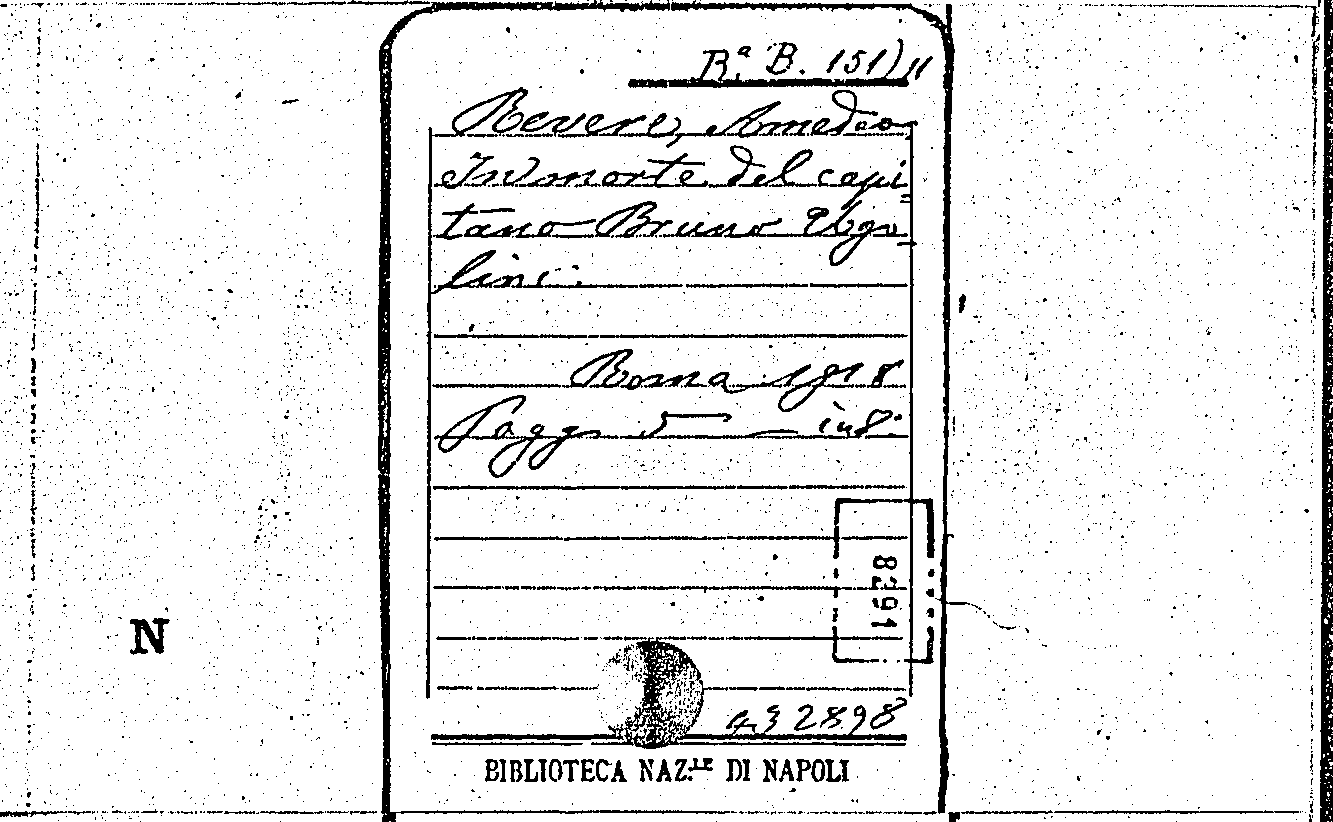 Rª B. 151) 11
Revere, Amedeo
In morte del capi=
tano Bruno Ugo=
lini.
Roma 1918
Pagg. 5 — in 8.
8291
N
432898
BIBLIOTECA NAZ.LE DI NAPOLI